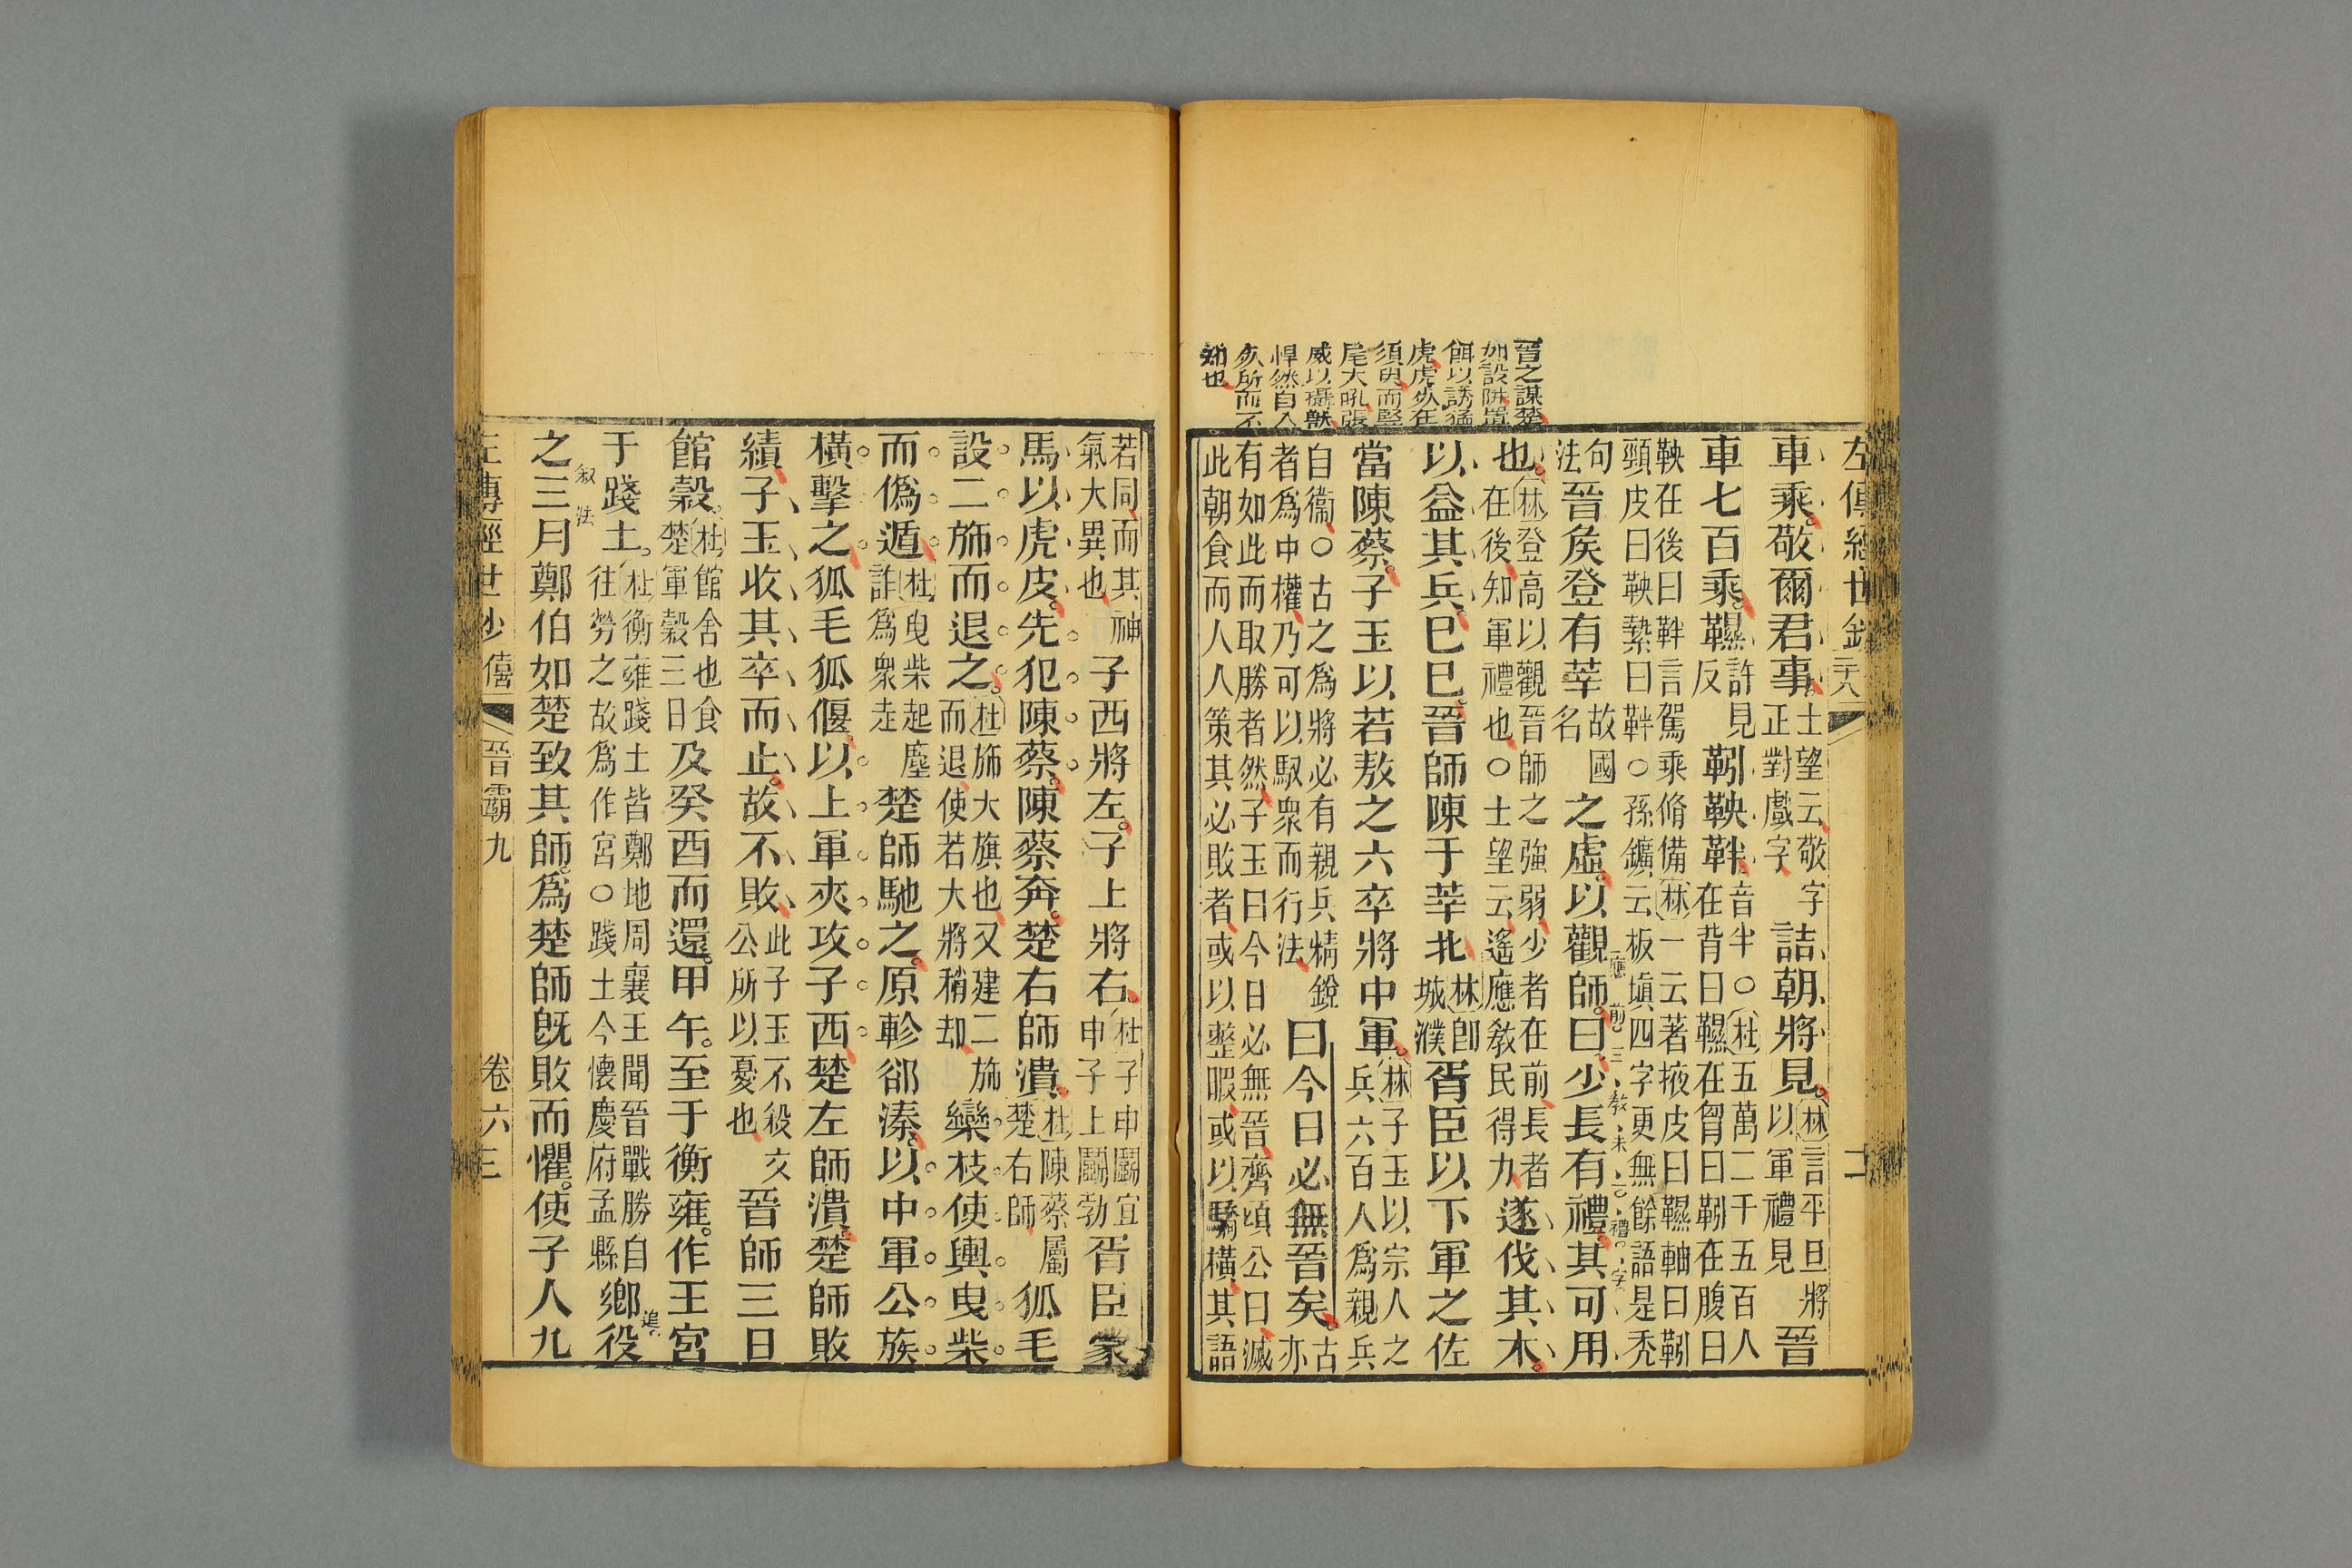 左傳經世鈔
二
晉之謀楚
如設阱置
餌以誘猛
虎虎必在
須臾而竪
尾大吼張
威以攝獸
悍然自入
必所而不
知也
車乘敬爾君事士望云敬字正對戲字詰朝將見林言平旦將以軍禮見晉
車七百乘韅許見反靷鞅靽音半○杜五萬二千五百人在背曰韅在胷曰靷在腹曰
鞅在後曰靽言駕乘脩備林一云著掖皮曰韅軸曰靷頸皮曰鞅縶曰靽○孫鑛云板塡四字更無餘語是禿
句法晉矦登有莘故國名之虛以觀師曰少長有禮其可用
應前三教未言禮字
也林登高以觀晉師之強弱少者在前長者在後知軍禮也○士望云遙應教民得力遂伐其木
以益其兵巳巳晉師陳于莘北林卽城濮胥臣以下軍之佐
當陳蔡子玉以若敖之六卒將中軍林子玉以宗人之兵六百人爲親兵
自衞○古之爲將必有親兵精銳者爲中權乃可以馭衆而行法曰今日必無晉矣古亦
有如此而取勝者然子玉曰今日必無晉齊頃公曰滅此朝食而人人策其必敗者或以整暇或以驕橫其語
若同而其神氣大異也子西將左子上將右杜子申鬬宜申子上鬬勃胥臣蒙
馬以虎皮先犯陳蔡陳蔡奔楚右師潰杜陳蔡屬楚右師狐毛
設二旆而退之杜旆大旗也又建二旆而退使若大將稍却欒枝使輿曳柴
而僞遁杜曳柴起塵詐爲衆走楚師馳之原軫郤溱以中軍公族
橫擊之狐毛狐偃以上軍夾攻子西楚左師潰楚師敗
績子玉收其卒而止故不敗此子玉不殺文公所以憂也晉師三日
館穀杜館舍也食楚軍穀三日及癸酉而還甲午至于衡雍作王宮
于踐土杜衡雍踐土皆鄭地周襄王聞晉戰勝自往勞之故爲作宮○踐土今懷慶府孟縣鄉役
追
敘法
之三月鄭伯如楚致其師爲楚師旣敗而懼使子人九
左傳經世鈔 僖 晉霸九 卷六 三